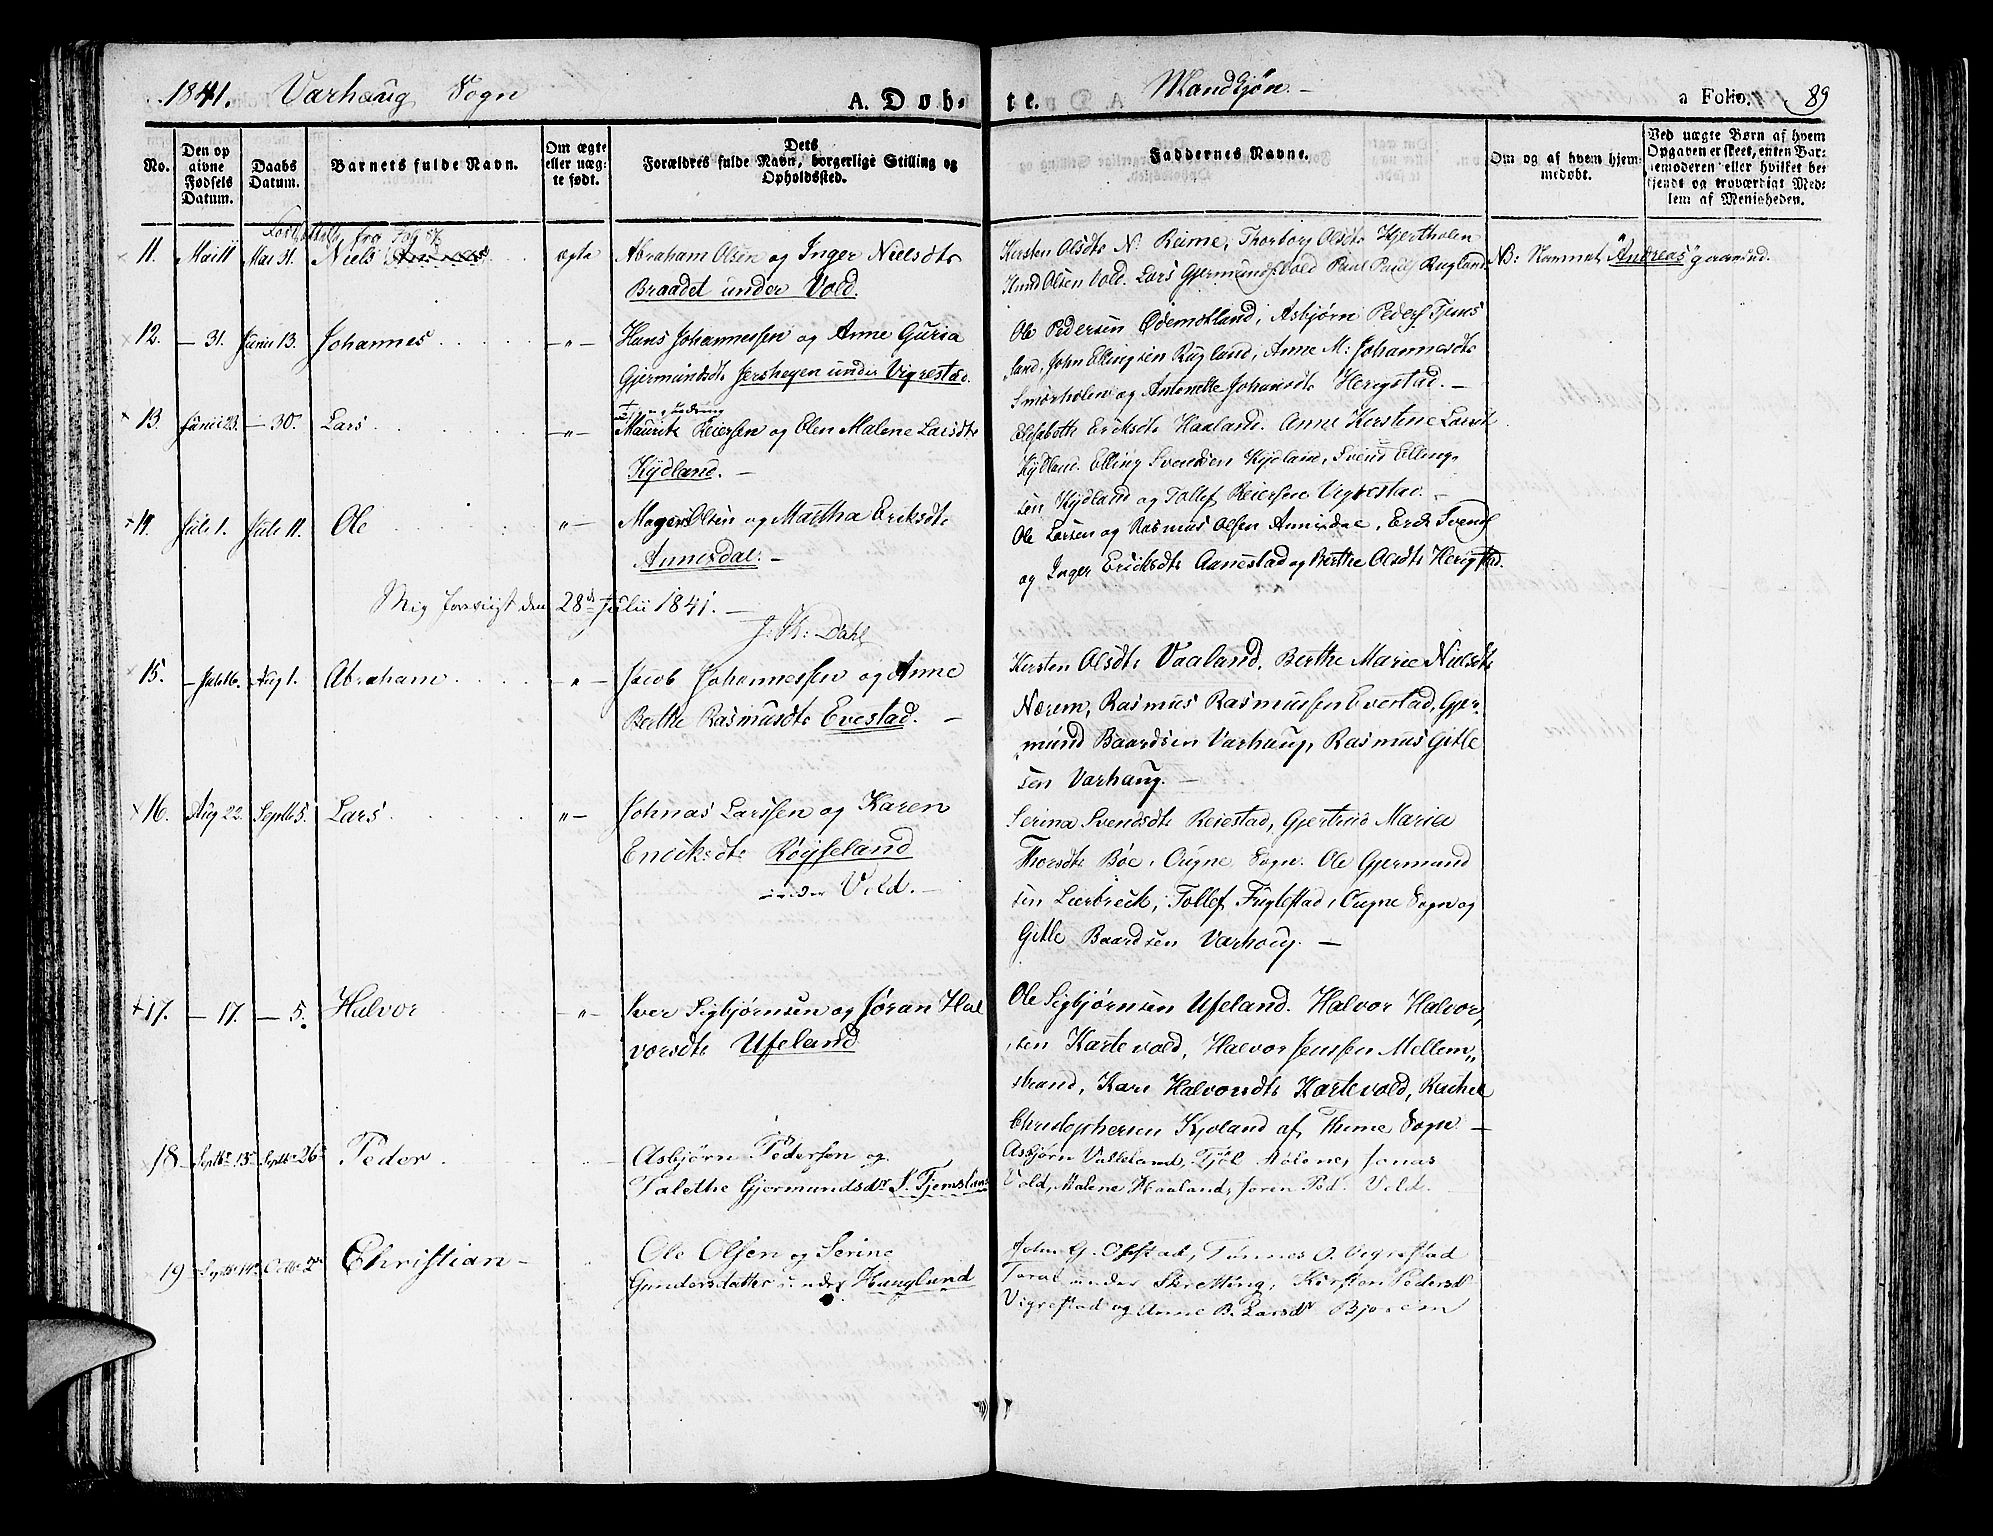 1841. Varhaug Sogn
A. Døb-
te.
Mandkjøn.
a Folio.
89
No.
Den op
givne
Fødsels
Datum.
Daabs
Datum.
Barnets fulde Navn.
Om ægte
eller uæg-
te født.
Dets
Forældres fulde Navn, borgerlige Stilling og
Opholdssted.
Faddernes Navne.
Om og af hvem hjem-
medøbt.
Ved uægte Børn af hvem
Opgaven er skeet, enten Bar-
nemoderen eller hvilket be
kjendt og troværdigt Med-
lem af Menigheden.
fra Fol 87
11. Mai 11 Mai 31. Niels Andreas ægte Abraham Olsen og Inger Nielsdtr
Braadet under Vold.
Kersten Olsdtr N. Reime, Thorborg Olsdtr Hjertholen
Knud Olsen Vold. Lars Gjermunds. Vold Paul Pauls Rugland.
NB: Navnet "Andreas"
12. — 31. Junii 13. Johannes —„— Hans Johannessen og Anne Guria
Gjermundsdtr Jersheyen under Vigrestad.
Ole Pedersen Ødemotland, Asbjørn Peders Tjems
land, John Ellingsen Rugland, Anne M: Johannesdtr
Smorholen og Antonette Johansdtr Herigstad. —
13. Junii 23. — 30. Lars —„— Mauritz Reiersen og Elen Malene Larsdtr
Kydland. —
Elisabeth Eriksdtr Haaland. Anne Kerstine Larsdt
Kydland. Elling Svendsen Kydland, Svend Elling-
sen Kydland og Tollef Reiersen Vigrestad. —
14. Juli 1. Juli 11. Ole „— Mogens Olsen og Martha Eriksdtr
Annisdal. —
Ole Larsen og Rasmus Olsen Annisdal, Erik Svends
og Inger Ericksdtr Aanestad og Berthe Olsdtr Herigstad.
Mig forevist den 28de Julii 1841. —
J: K: Dahl
15. — Juli 16. Aug 1. Abraham „— Jacob Johannessen og Anne
Berthe Rasmusdtr Evestad. —
Kersten Olsdtr Vaaland. Berthe Marie Nielsdtr
Nærem, Rasmus Rasmussen Evestad, Gjer-
mund Baardsen Varhaug, Rasmus Gitle
sen Varhaug. —
16. Aug 22. Septb 5. Lars „— Johnas Larssen og Karen
Enoiksdtr Røyseland
under Vold. —
Serina Svendsdtr Reiestad, Gjertrud Maria
Thorsdtr Bøe, Ougne Sogn. Ole Gjermund
sen Lierbreck, Tollef Fuglestad, Ougne Sogn og
Gitle Baardsen Varhoug. —
17. — 17. — 5. Halvor —„— Iver Sigbjørnsen og Joran Hal
vorsdtr Ufeland
Ole Sigbjørnsen Ufeland. Halvor Halvor-
sen Kartevold, Halvor Jenssen Mellem-
strand, Kari Halvorsdtr Kartevold, Rachel
Christophersen Kjoland af Thime Sogn —
18 Septbr 15 Septbr 26 Peder Asbjørn Pedersen og
Talethe Gjermundsdr S. Tjemsland
Asbjørn Valleland, Malene, Jonas
Vold, Malene Haaland, Joren Ped. Vold.
19 Septbr Octbr Christian Ole Olsen og Serine
Gundersdatter under Hauglund
John G. Opstad, Tønnes O. Vigrestad
Toral under Skretting, Kirsten Pedersdr
Vigrestad og Anne B. Larsdr Bjorem